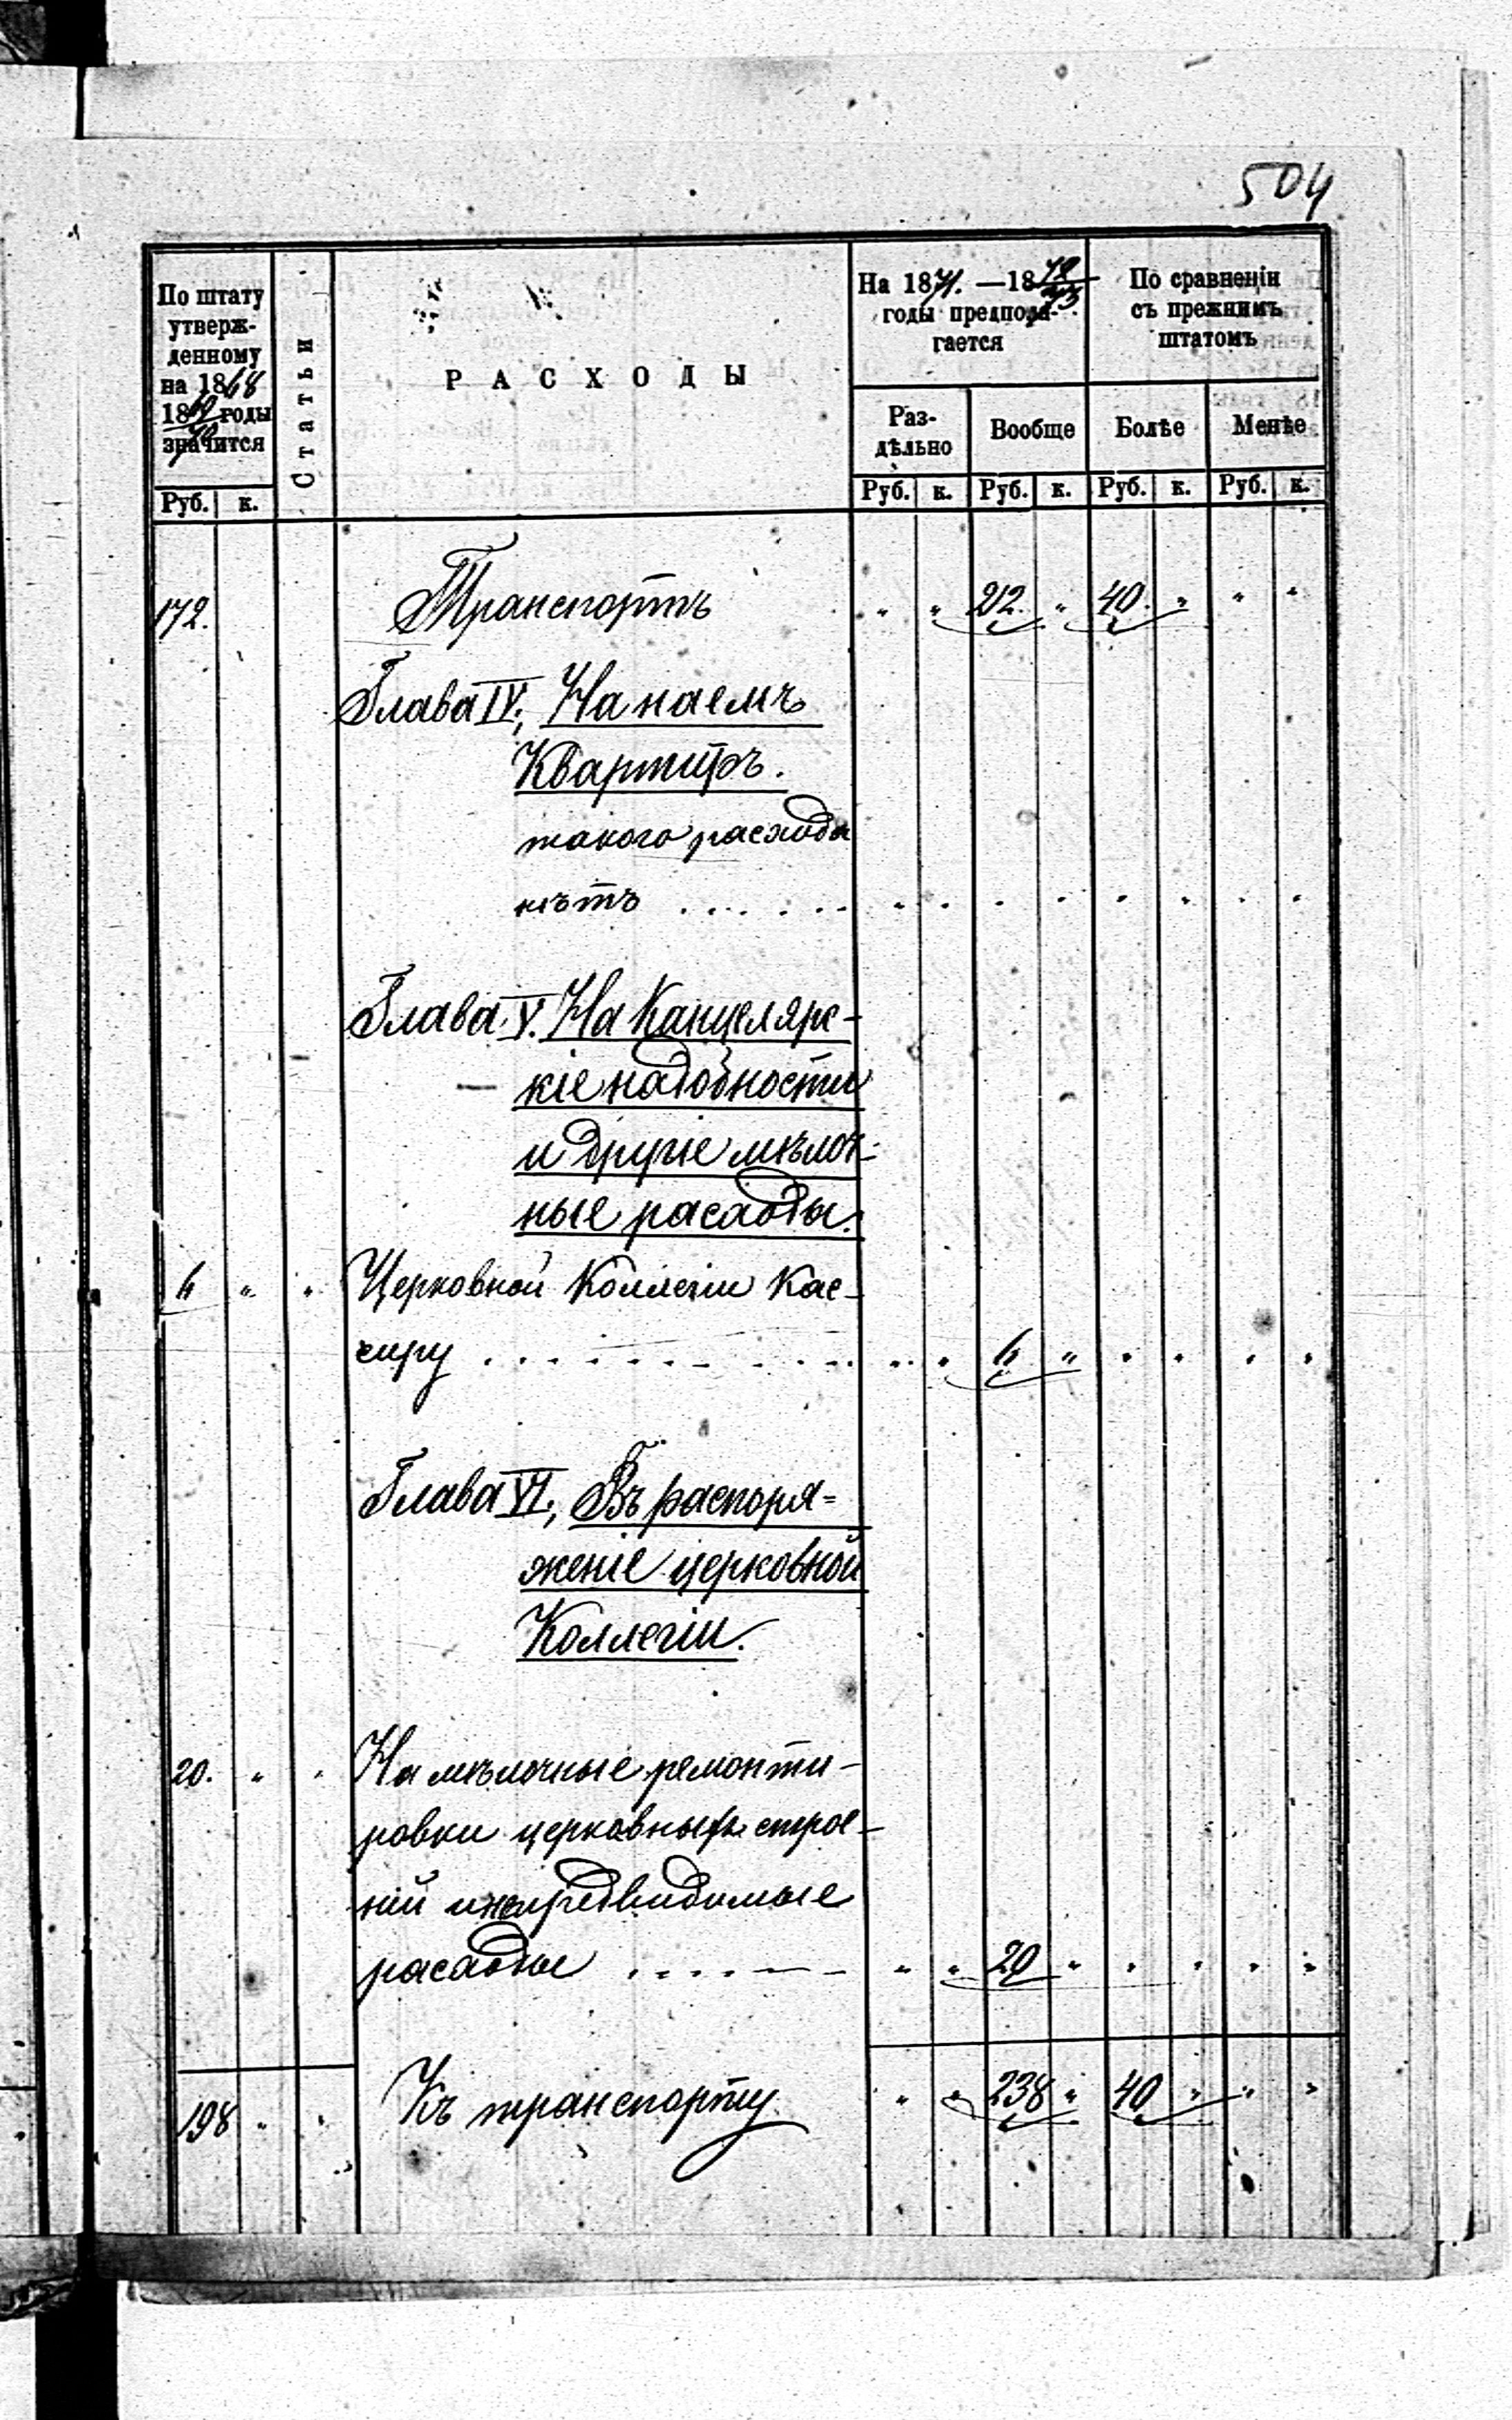 504
По штату
утверж-
денному
на 1868
1869/70 годы
значится
Статьи
РАСХОДЫ
На 1871. —1872/73.
годы предпола-
гается
По сравненію
съ прежнимъ
штатомъ
Раз-
дѣльно
Вообще
Болѣе
Менѣе
Руб. к. Руб. к. Руб. к. Руб. к. Руб. к.
172. Транспортъ " " 212. " 40. " " "
Глава IV; На наемъ
Квартиръ.
такого расхода
нѣтъ . . . . . .
Глава V. На Канцелярс-
кіе надобности
и другіе мѣлоч-
ные расходы.
6 " " Церковной Коллегіи Кас-
сиру . . . . . . . . . . 6 "
Глава VI; Въ распоря=
женіе церковной
Коллегіи.
20. " " На мѣлочные ремонти-
ровки церковныхъ строе-
ній и непредвидимые
расходы . . . . - - - " " 20 " " " " "
198 " " Къ транспорту " " 238 " 40 " " "